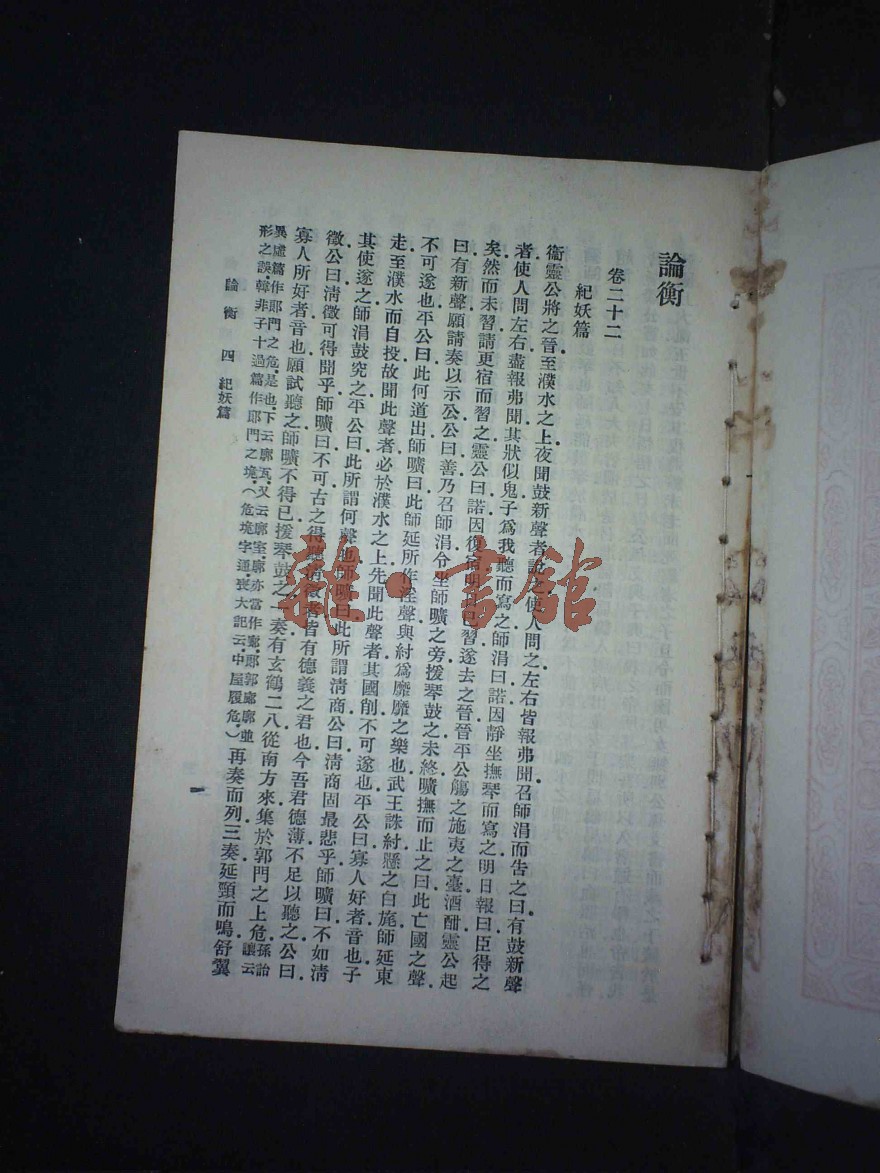 論衡
卷二十二
紀妖篇
衞靈公將之晉至濮水之上夜聞鼓新聲者說之使人問之左右皆報弗聞召師涓而告之曰有鼓新聲
者使人問左右盡報弗聞其狀似鬼子爲我聽而寫之師涓曰諾因靜坐撫琴而寫之明日報曰臣得之
矣然而未習請更宿而習之靈公曰諾因復宿明日已習遂去之晉晉平公觴之施夷之臺酒酣靈公起
曰有新聲願請奏以示公公曰善乃召師涓令坐師曠之旁援琴鼓之未終曠撫而止之曰此亡國之聲
不可遂也平公曰此何道出師曠曰此師延所作淫聲與紂爲靡靡之樂也武王誅紂懸之白旄師延東
走至濮水而自投故聞此聲者必於濮水之上先聞此聲者其國削不可遂也平公曰寡人好者音也子
其使遂之師涓鼓究之平公曰此所謂何聲也師曠曰此所謂淸商公曰淸商固最悲乎師曠曰不如淸
徵公曰淸徵可得聞乎師曠曰不可古之得聽淸徵者皆有德義之君也今吾君德薄不足以聽之公曰
寡人所好者音也願試聽之師曠不得已援琴鼓之一奏有玄鶴二八從南方來集於郭門之上危孫詒讓云
異虛篇作郎門之危是也下云廊瓦又云廊室廓亦當作廊郎郭廊廓並
形之誤韓非子十過篇作郎門之垝（危垝字通喪大記云中屋履危）再奏而列三奏延頸而鳴舒翼
論衡 四 紀妖篇
雜·書館